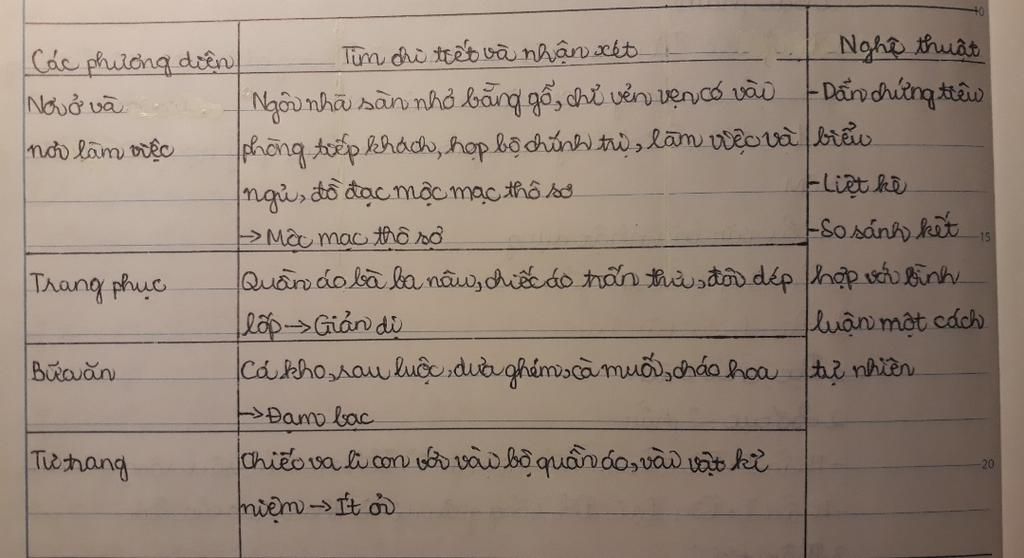 Các phương diện
Tìm chi tiết và nhận xét
Nghệ thuật
Nơi ở và
nơi làm việc
Ngôi nhà sàn nhỏ bằng gỗ, chỉ vẻn vẹn có vài
phòng tiếp khách, họp bộ chính trị, làm việc và
ngủ, đồ đạc mộc mạc thô sơ
→ Mộc mạc thô sơ
Trang phục
Quần áo bà ba nâu, chiếc áo trấn thủ, đôi dép
lốp → Giản dị
Bữa ăn
Cá kho, rau luộc, dưa ghém, cà muối, cháo hoa
→ Đạm bạc
Tư trang
Chiếc va li con với vài bộ quần áo, vài vật kỉ
niệm → Ít ỏi
- Dẫn chứng tiêu
biểu
- Liệt kê
- So sánh kết
hợp với bình
luận một cách
tự nhiên
10
15
20